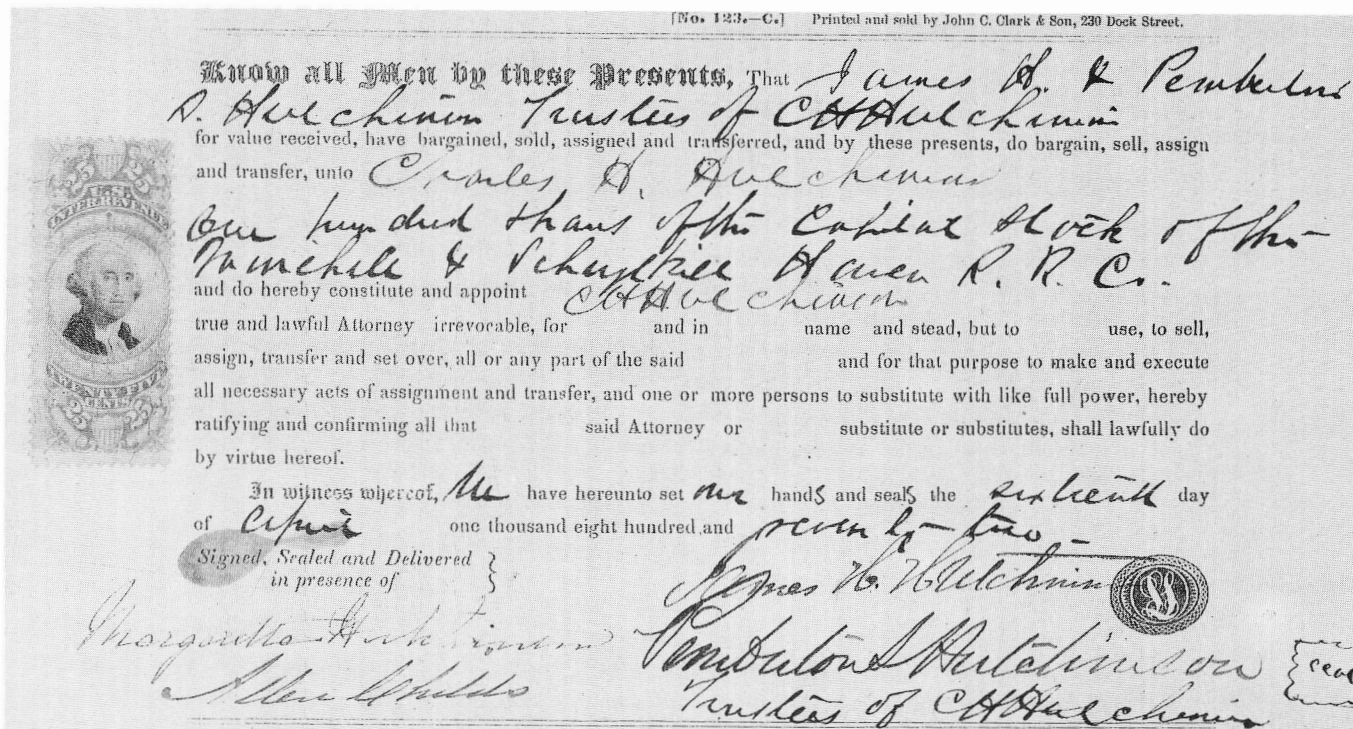 [No. 123.—C.] Printed and sold by John C. Clark & Son, 230 Dock Street.
Know all Men by these Presents, That James H. & Pemberton
S. Hutchinson Trustees of C H Hutchinson
for value received, have bargained, sold, assigned and transferred, and by these presents, do bargain, sell, assign
and transfer, unto Charles H. Hutchinson
One hundred shares of the Capital Stock of the
& Schuylkill Haven R. R. Co.
and do hereby constitute and appoint C H Hutchinson
true and lawful Attorney irrevocable, for and in name and stead, but to use, to sell,
assign, transfer and set over, all or any part of the said and for that purpose to make and execute
all necessary acts of assignment and transfer, and one or more persons to substitute with like full power, hereby
ratifying and confirming all that said Attorney or substitute or substitutes, shall lawfully do
by virtue hereof.
In witness whereof, We have hereunto set our hands and seals the sixteenth day
of April one thousand eight hundred and seventy-two
Signed, Sealed and Delivered
in presence of
James H. Hutchinson
Margaretta Hutchinson
Pemberton S Hutchinson
Seal
Trustees of C H Hutchinson
25 25
U.S.
INTER. REVENUE
TWENTY FIVE
CENTS
25 25